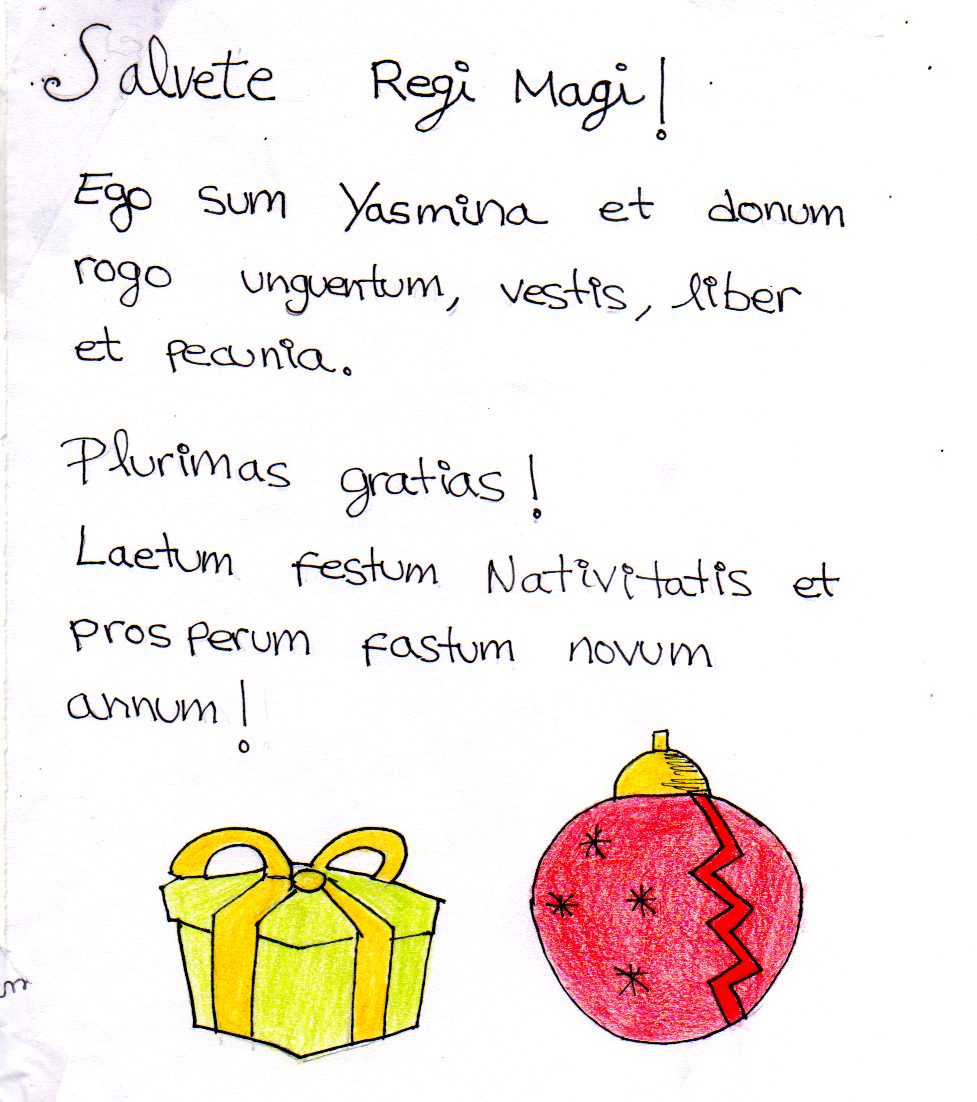 Salvete Regi Magi!
Ego sum Yasmina et donum
rogo unguentum, vestis, liber
et pecunia.
Plurimas gratias!
Laetum festum Nativitatis et
prosperum fastum novum
annum!